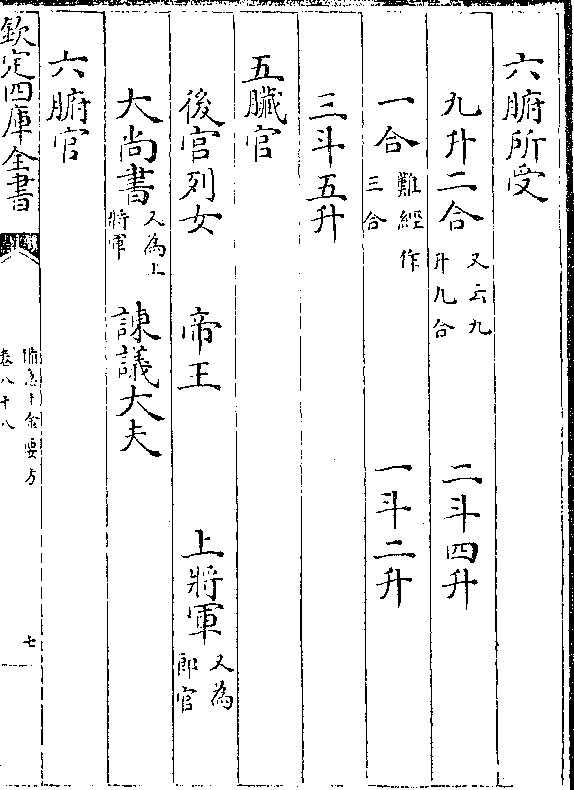 六腑所受
九升二合 又云九升九合 二斗四升
一合 難經作三合 一斗二升
三斗五升
五臟官
後宮列女 帝王 上將軍 又為郎官
大尚書 又為上將軍 諫議大夫
六腑官
欽定四庫全書
備急千金要方
卷八十八
七